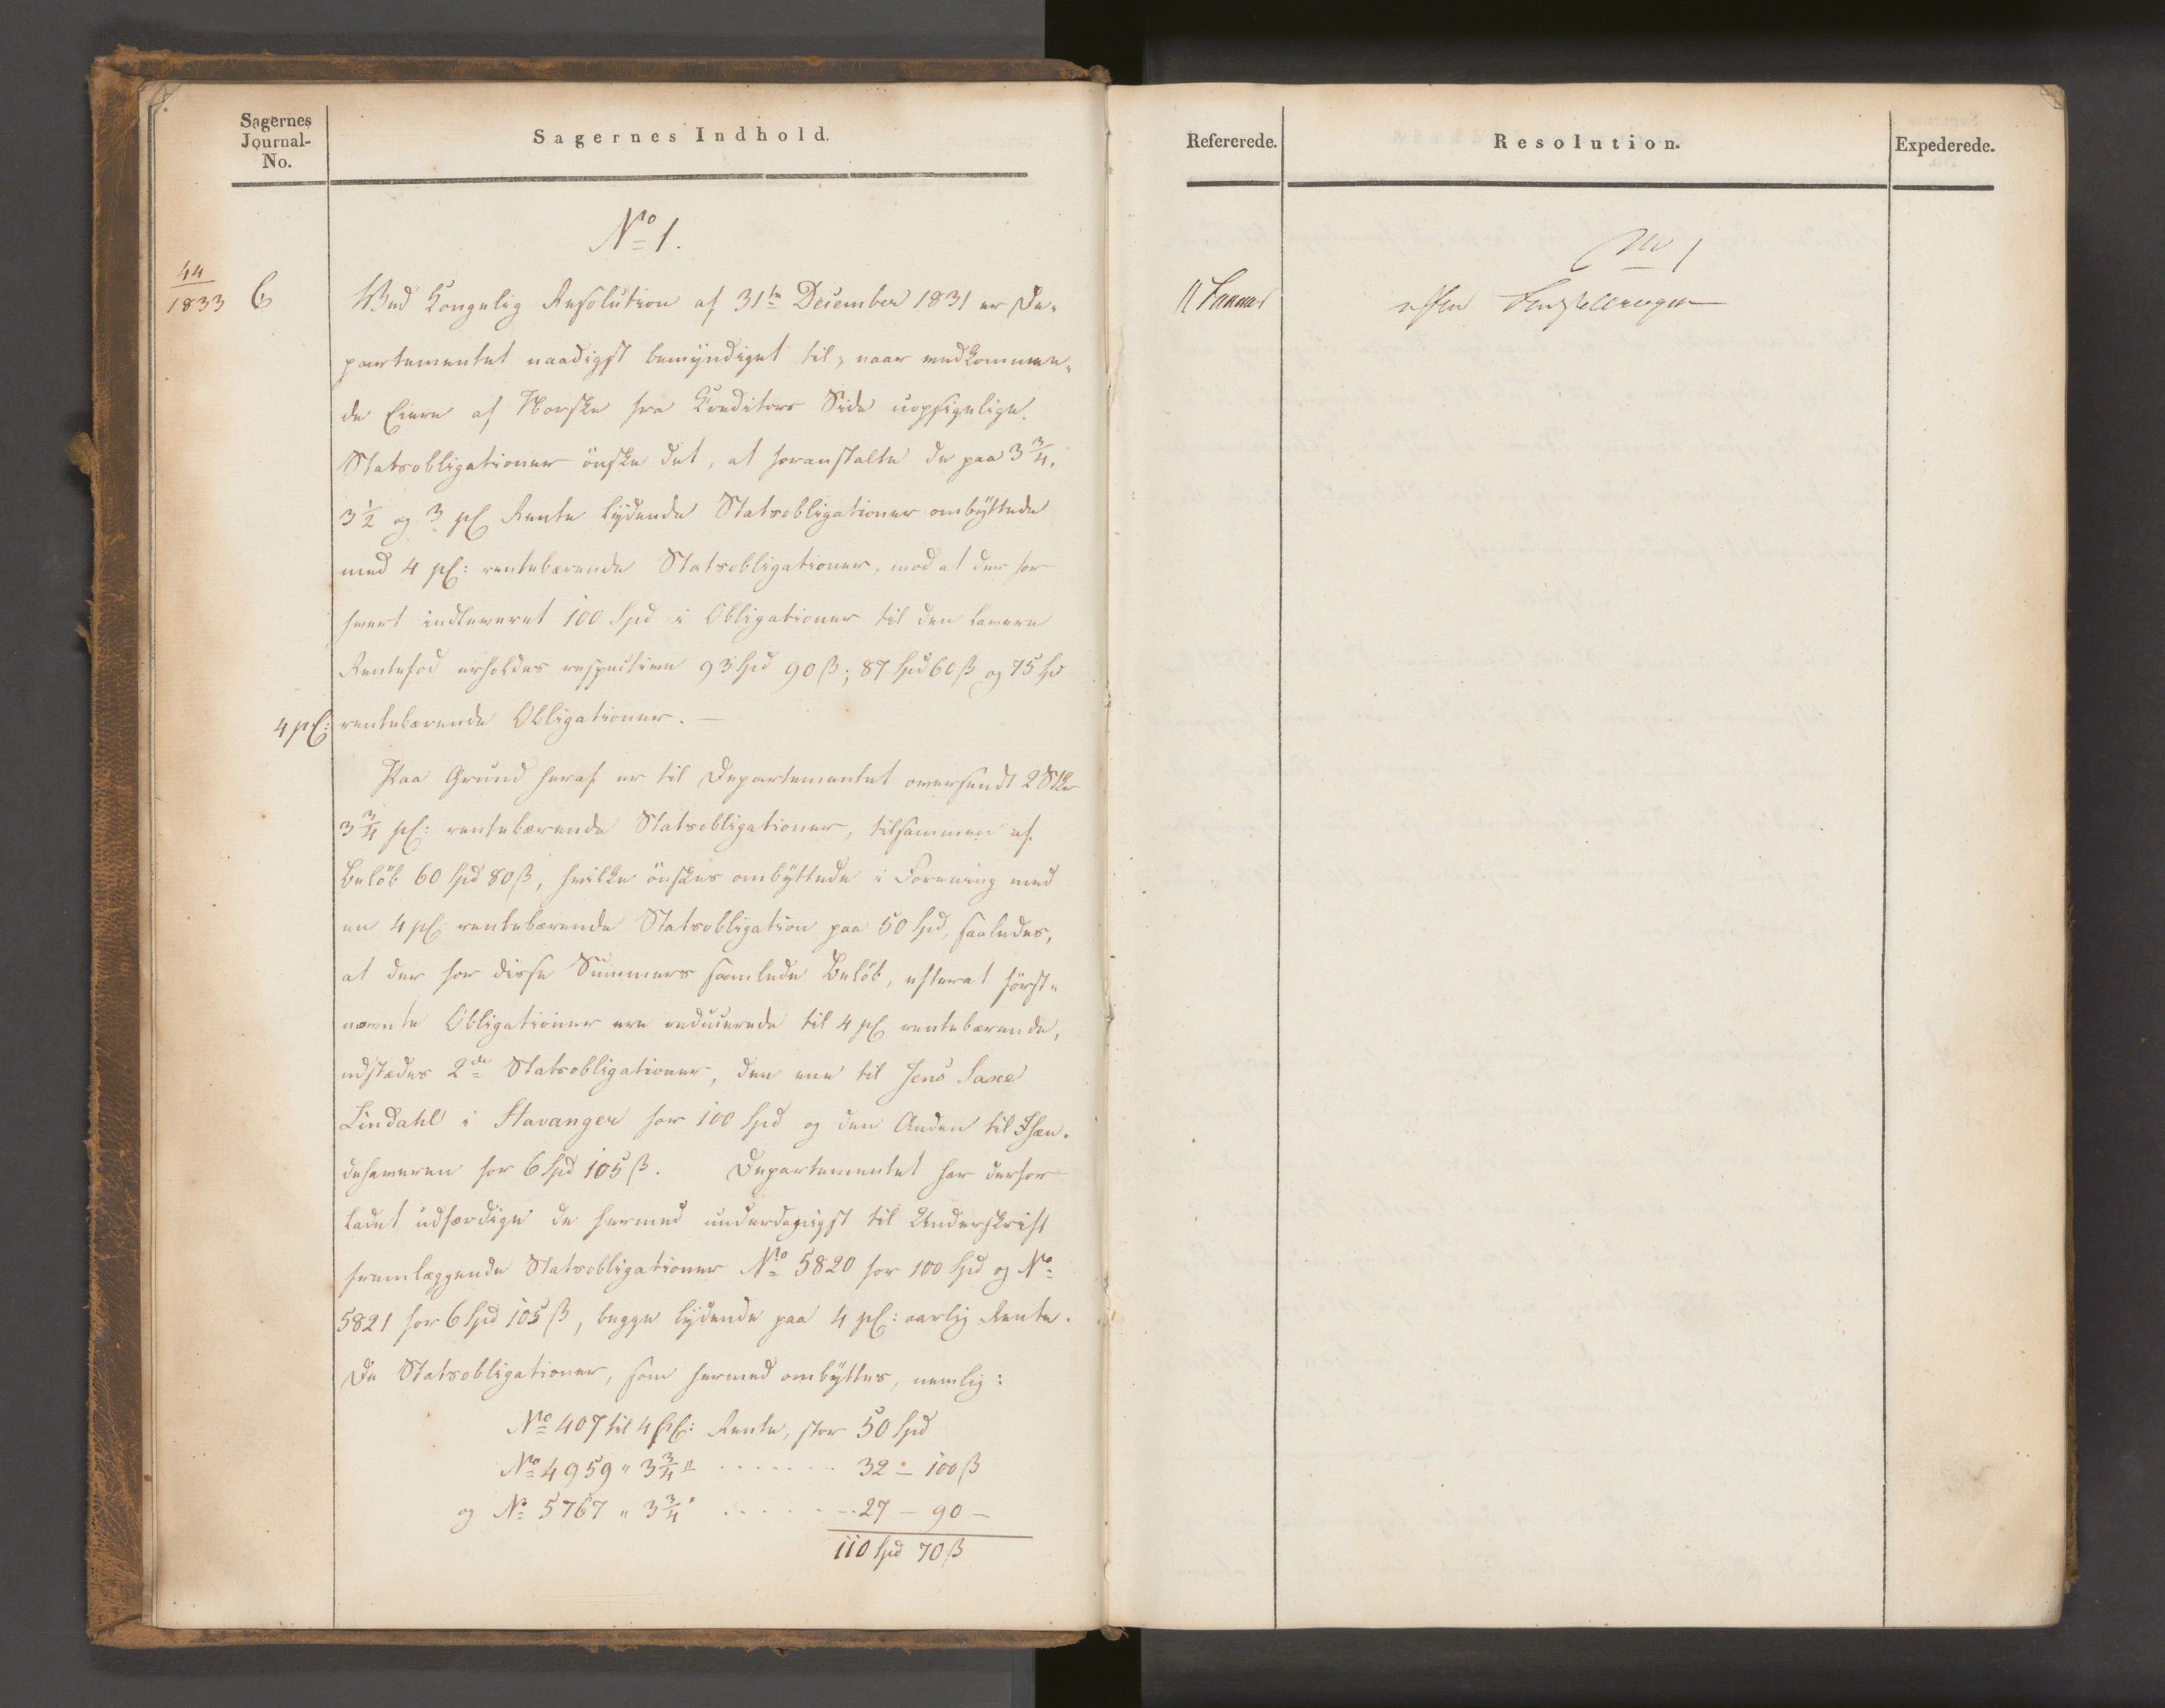 Sagernes
Journal-
No.
Sagernes Indhold.
No 1.
44
1833
C
Ved Kongelig Resolution af 31te December 1831 er De-
partementet naadigst bemyndiget til, naar vedkommen-
de Eiere af Norske fra Creditors Side uopsigelige
Statsobligationer önske det, at foranstalte de paa 3 3/4,
3 1/2 og 3 pC Rente lydende Statsobligationer ombyttede
med 4 pC: rentebærende Statsobligationer, mod at der for
hvert indleveret 100 Spd i Obligationer til den lavere
Rentefod erholdes respective 93 Spd 90 ß; 87 Spd 60 ß og 75 Spd
4 pC: rentebærende Obligationer. —
Paa Grund heraf er til Departementet oversendt 2 Stkr
3 3/4 pC: rentebærende Statsobligationer, tilsammen af
Beløb 60 Spd 80 ß, hvilke önskes ombyttede i Forening med
en 4 pC: rentebærende Statsobligation paa 50 Spd, saaledes,
at der for disse Summers samlede Beløb, efterat först-
nævnte Obligationer ere reducerede til 4 pC rentebærende,
udstædes 2de Statsobligationer, den ene til Jens Saxe
Lindahl i Stavanger for 100 Spd og den Anden til Ihæn-
dehaveren for 6 Spd 105 ß. Departementet har derfor
ladet udfærdige de hermed underdanigst til Underskrift
fremlæggende Statsobligationer No 5820 for 100 Spd og No
5821 for 6 Spd 105 ß, begge lydende paa 4 pC: aarlig Rente.
De Statsobligationer, som hermed ombyttes, nemlig:
No 407 til 4 pC: Rente, stor 50 Spd
No 4959 " 3 3/4 " ....... 32 — 100 ß
og No 5767 " 3 3/4 " ....... 27 — 90 —
110 Spd 70 ß
Refererede.
Resolution.
Expederede.
No 1
11 Januar
efter Indstillingen